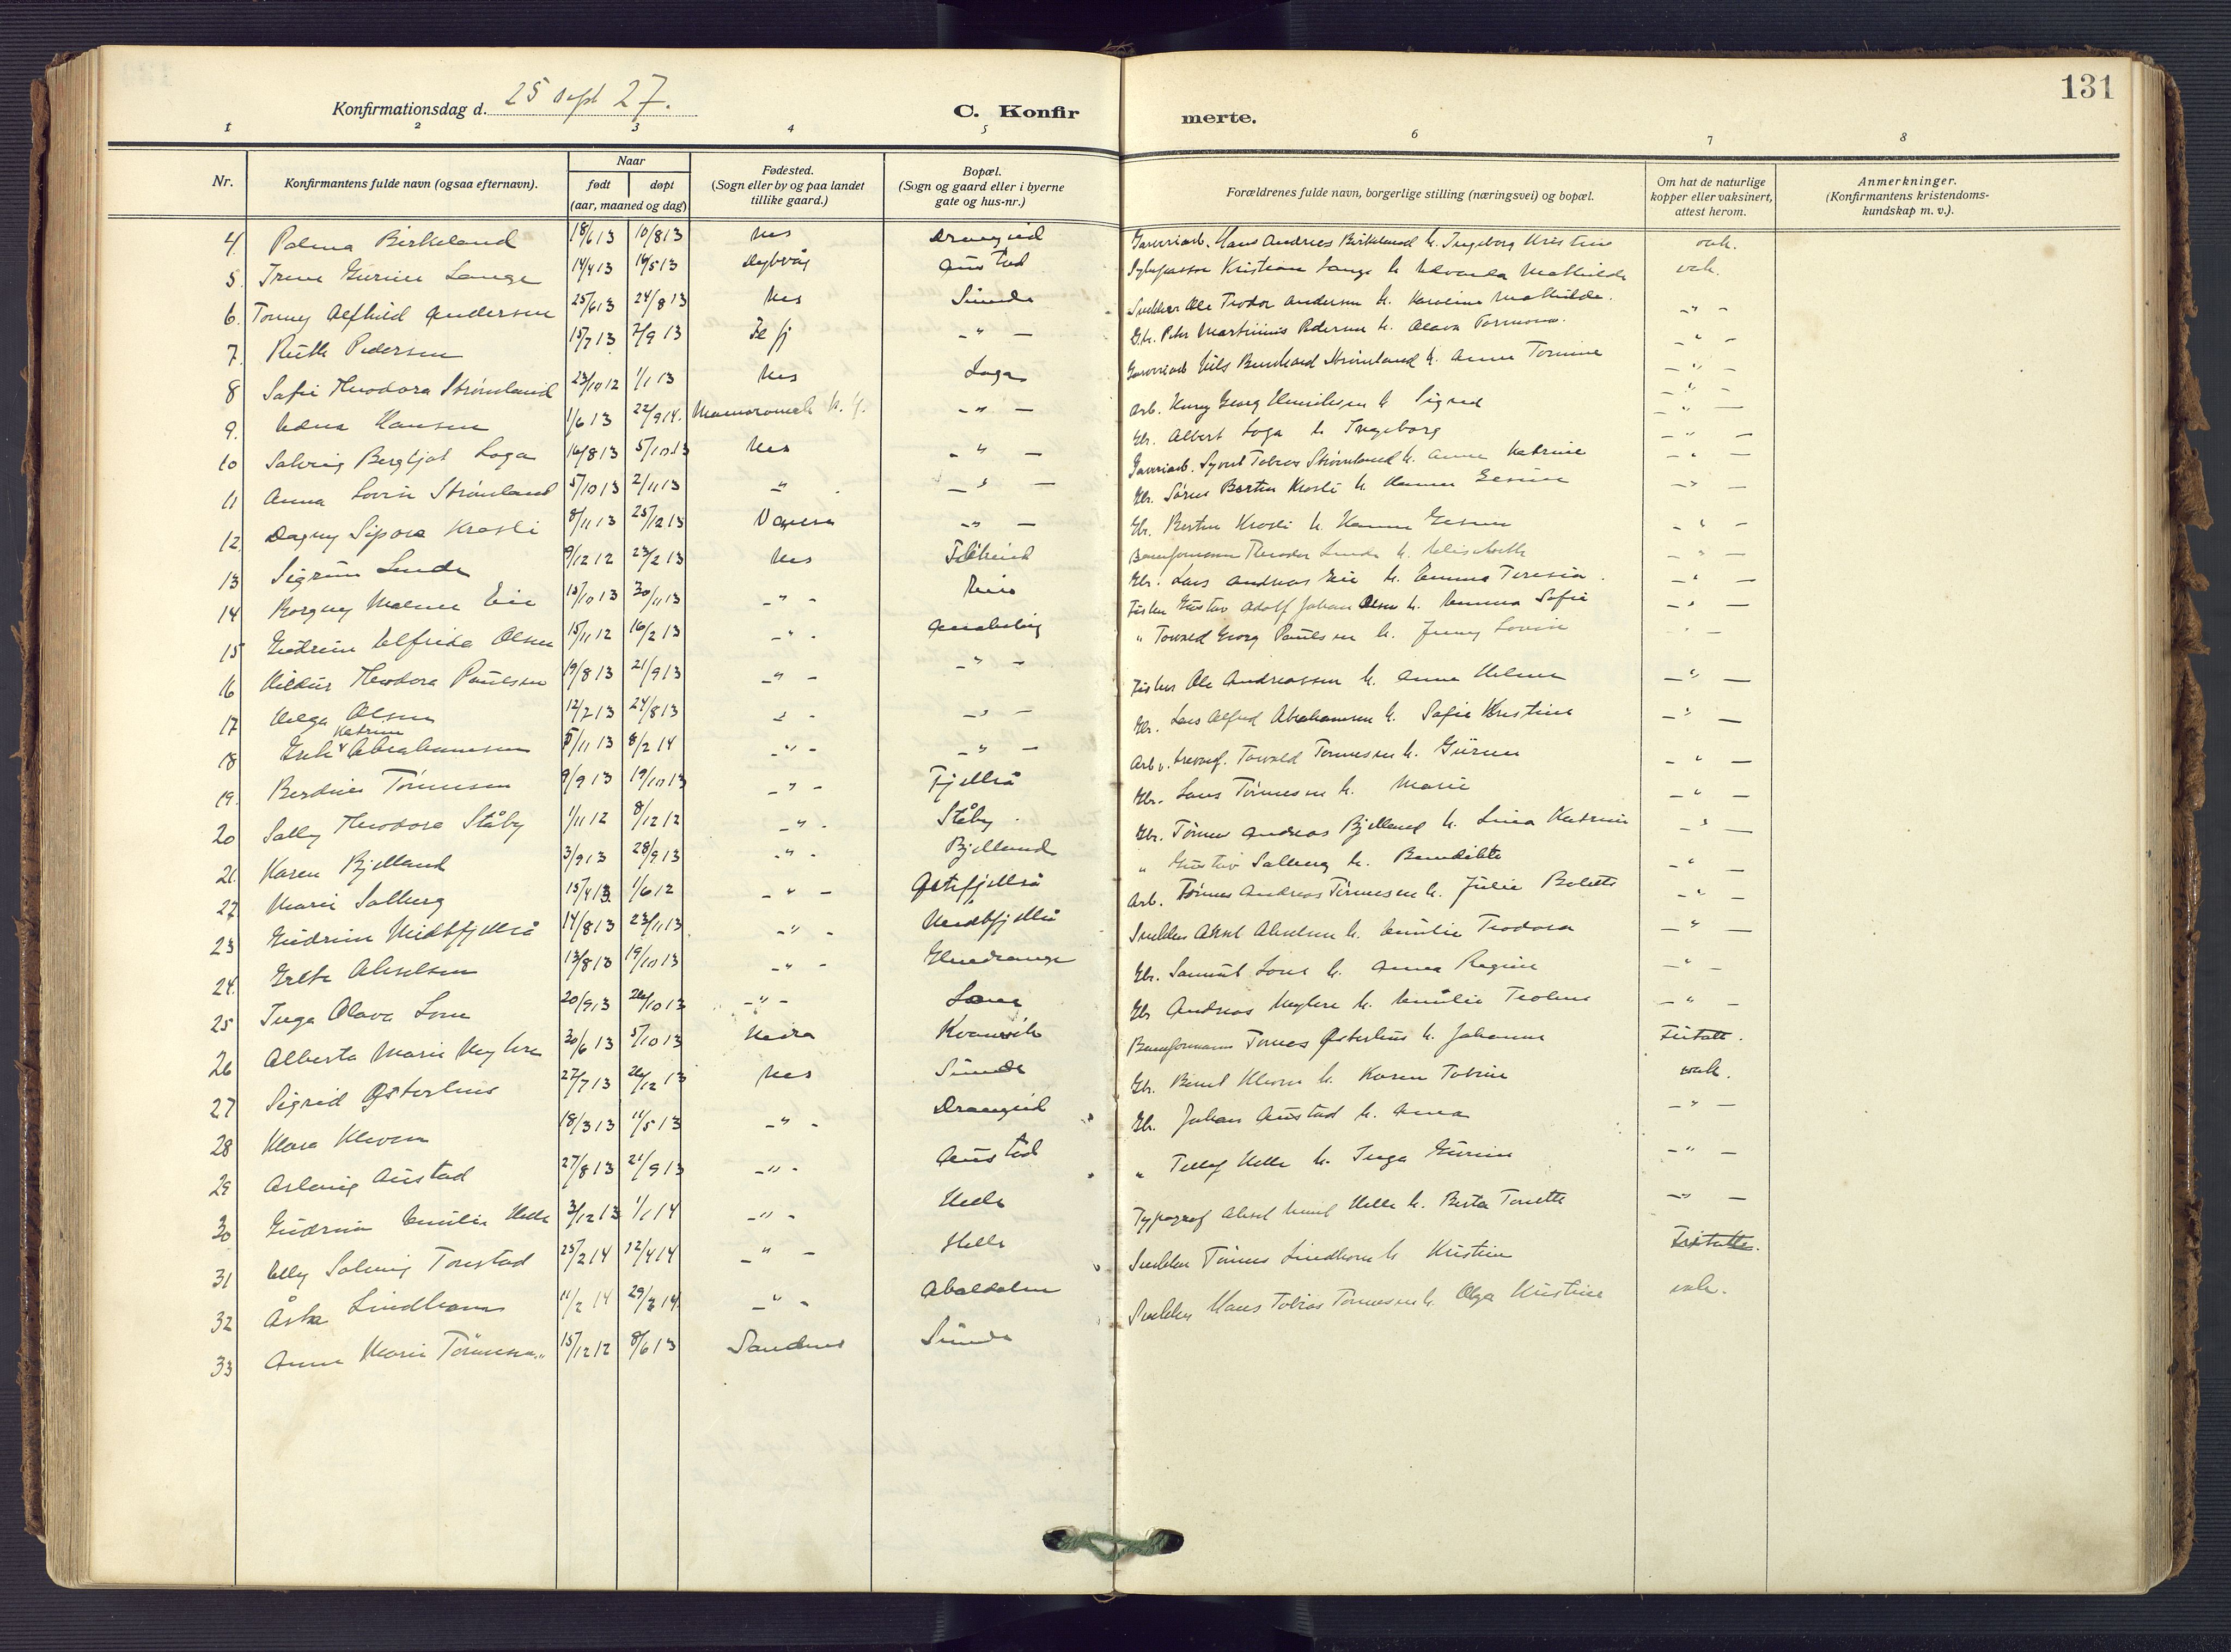 131
Konfirmationsdag d. 25 sept 27.
C. Konfirmerte.
1 2 3 4 5 6 7 8
Nr.
Konfirmantens fulde navn (ogsaa efternavn).
Naar
født
døpt
(aar, maaned og dag)
Fødested.
(Sogn eller by og paa landet
tillike gaard.)
Bopæl.
(Sogn og gaard eller i byerne
gate og hus-nr.)
Forældrenes fulde navn, borgerlige stilling (næringsvei) og bopæl.
Om hat de naturlige
kopper eller vaksinert,
attest herom.
Anmerkninger.
(Konfirmantens kristendoms-
kundskap m. v.).
4. Palma Birkeland 18/6 13 10/8 13 Nes Drangeid Garveriarb. Hans Andreas Birkeland h. Ingeborg Kristine vak.
5. Irene Gurine Lange 14/4 13 14/5 13 Dybvåg Austad Kristian Lange h. Mathilde vak.
6. Tonny Alfhild Andersen 25/6 13 24/8 13 Nes Sunde Snekker Ole Teodor Andersen h. Karoline Mathilde. - " -
7. Ruth Pedersen 15/7 13 7/9 13 Fl fj - " - Gbr. Peter Martinius Pedersen h. Olava - " -
8 Sofie Theodora Strømland 23/10 12 1/1 13 Nes Loga Garveriarb Nils Bernhard Strømland h. Anna Tomine - " -
9. Edna Hansen 1/6 13 22/9 14. - " - Arb. Georg Henriksen h Sigrid - " -
10 Solveig Bergljot Loga 16/8 13 5/10 13 Nes - " - Gbr. Albert Loga h Ingeborg - " -
11 Anna Lovise Strømland 5/10 13 2/11 13 - " - - " - Garveriarb. Syvert Tobias Strømland h. Anne Katrine - " -
12. Dagny Sipora Krosli 8/11 13 25/12 13 Vanse - " - Gbr. Søren Bertin Krosli h. Hanna Gesine - " -
13 Sigrun Lunde 9/12 12 23/2 13 Nes Flikeid Theodor Lunde h. Elisabeth - " -
14 Borgny Malene Eie 15/10 13 30/11 13 - " - Gbr. Lars Andreas Eie h. Emma Teresia. - " -
15 Gudrun Elfrida Olsen 15/11 12 16/2 13 - " - Fisker Gustav Adolf Johan Olsen h. Emma Sofie - " -
16 Hildur Theodora Paulsen 19/8 13 21/9 13 - " - - " - " Torvald Georg Paulsen h. Jenny Lovise - " -
17 Helga Olsen 12/7 13 24/8 13 - " - - " - Fisker Ole Andreassen h. Anna Helene - " -
18 Katrine Abrahamsen 5/11 13 8/2 14 - " - - " - Gbr. Lars Alfred Abrahamsen h. Sofie Kristine - " -
19. Berdine Tønnesen 9/9 13 19/10 13 - " - Fjellså Torvald Tønnesen h. Gurine - " -
20 Sally Theodora Ståby 1/11 12 8/12 12 - " - Ståby. Gbr. Lars Tønnesen h. Marie - " -
21. Karen Bjelland 3/9 13 28/9 13 - " - Bjelland Gbr. Tønnes Andreas Bjelland h. Lina Katrine - " -
22 Marie Salberg 15/4 13 1/6 12 - " - Østefjellså " Gustav Salberg h. Benedikte - " -
23 Gudrun Midtfjellså 14/8 13 23/11 13 - " - Midtfjellså Arb. Tønnes Andreas Tønnesen h. Julie Bolette - " -
24. Grete Akselsen 13/8 13 19/10 13 - " - Snekker Aksel Akselsen h. Emilie Teodora - " -
25 Inga Olava Lone 20/9 13 26/10 13 - " - Lone Gbr. Samuel Lone h. Anna Regine - " -
26 Alberta Marie 30/6 13 5/10 13 Hidra Kvanvik Gbr Andreas h. Emilie Teoline - " -
27 Sigrid Østerhus 27/7 13 26/12 13 Nes Sunde Tønnes Østerhus h. Johanne Fritatt.
28 Klara Kleven 18/3 13 11/5 13 - " - Drangeid Gbr. Bent Kleven h. Karen Tobine vak.
29 Aslaug Austad 27/8 13 21/9 13 - " - Austad Gbr. Johan Austad h. Anna - " -
30 Gudrun Emilie Helle 3/12 13 1/1 14 - " - Helle " Tellef Helle h. Inga Gurine - " -
31 Elly Solveig Tonstad 25/2 14 12/4 14 - " - Helle Typograf Aksel Emil Helle h. Berta Tonette - " -
32 Åsta Lindhom 11/2 14 29/3 14. - " - Abelsholm Snekker Tønnes Lindhom h Kristine Fritatt.
33 Anna Marie Tønnesen 15/12 12 8/6 13 Sandnes Sunde Snekker Hans Tobias Tønnesen h. Olga Kristine vak.